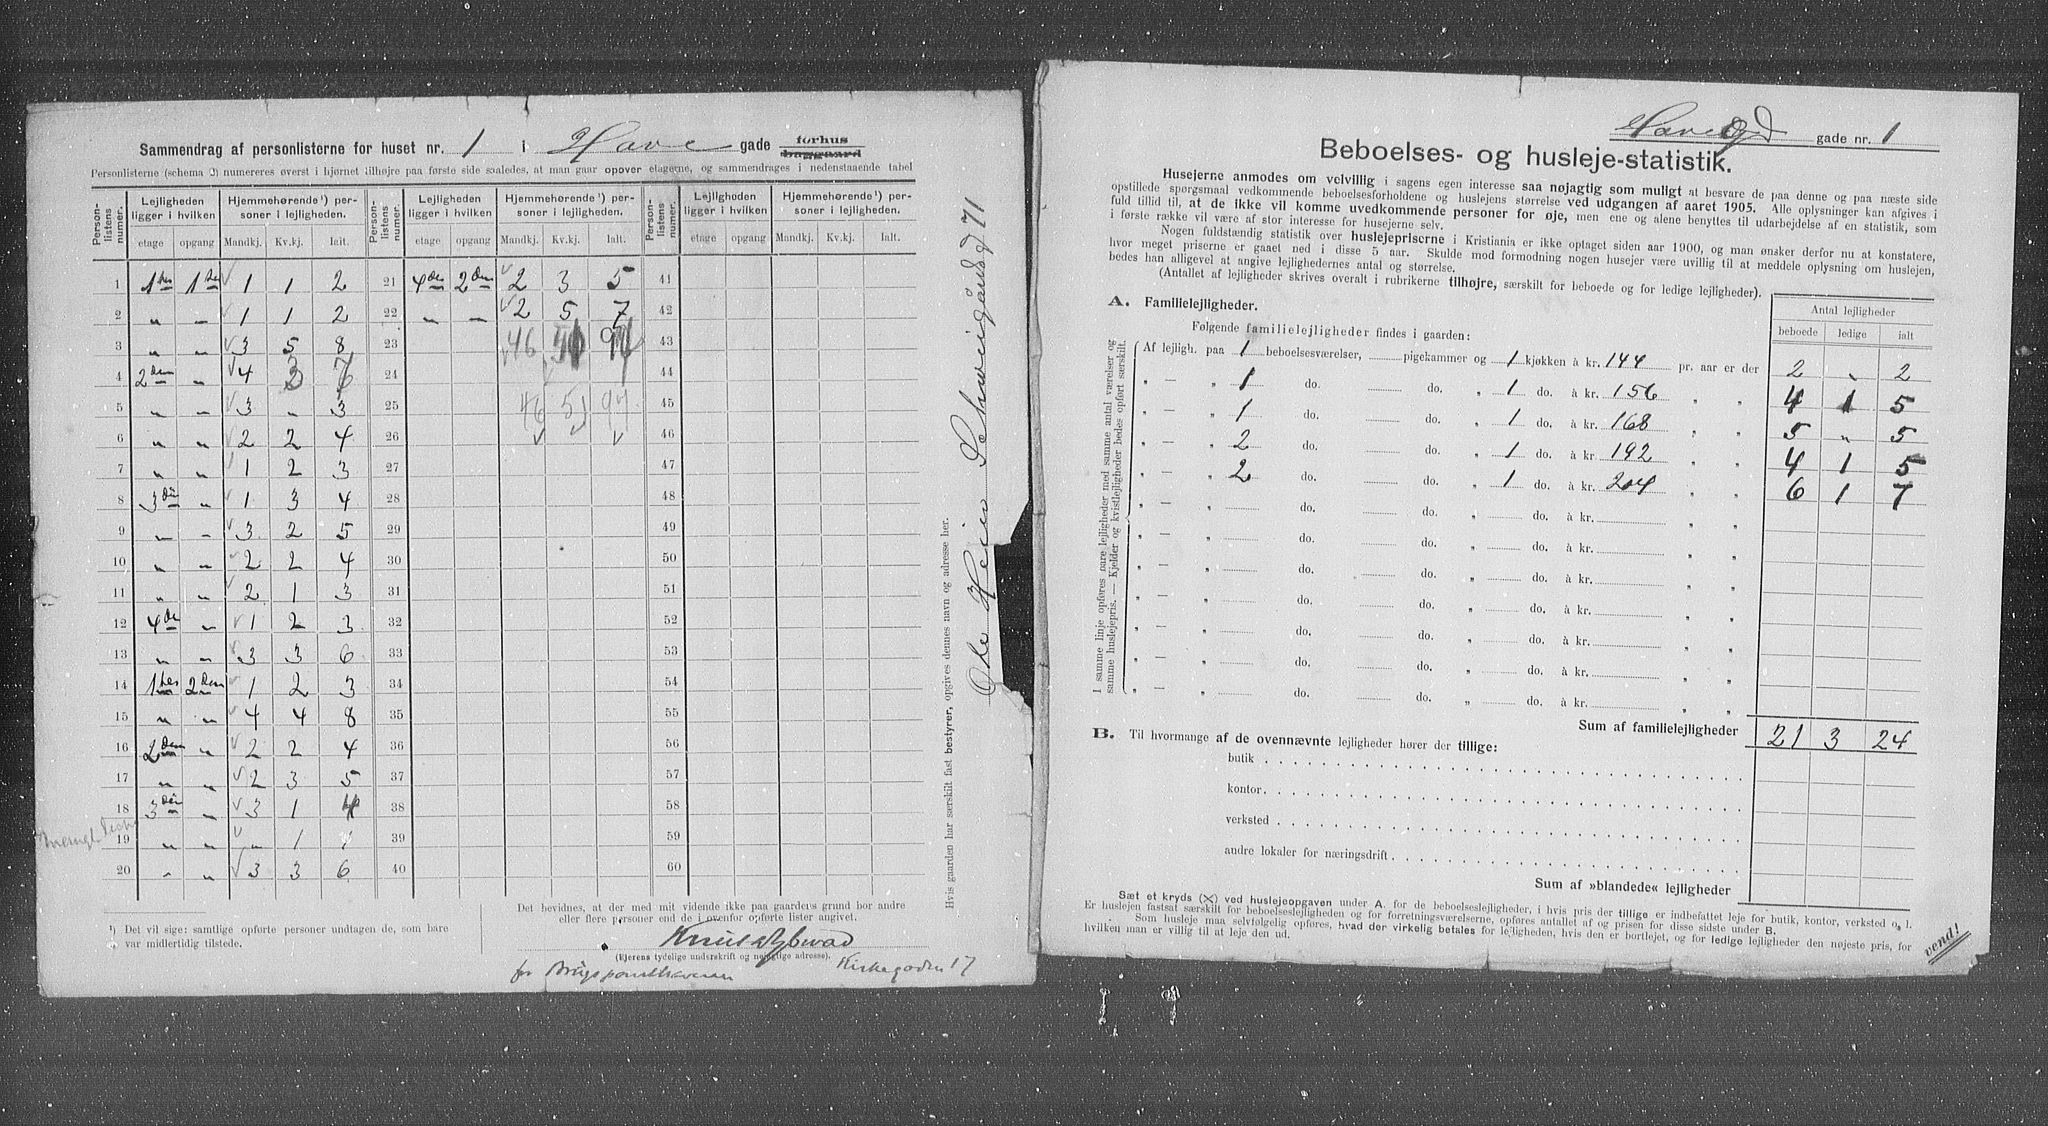 Sammendrag af personlisterne for huset nr. 1 i Have gade forhus
baggaard
Personlisterne (schema 3) numereres øverst i hjørnet tilhøjre paa første side saaledes, at man gaar opover etagerne, og sammendrages i nedenstaaende tabel
Person-listens numer. | Lejligheden ligger i hvilken | Hjemmehørende¹) personer i lejligheden. | Person-listens numer. | Lejligheden ligger i hvilken | Hjemmehørende¹) personer i lejligheden. | Person-listens numer. | Lejligheden ligger i hvilken | Hjemmehørende¹) personer i lejligheden.
etage | opgang | Mandkj. | Kv.kj. | Ialt. | etage | opgang | Mandkj. | Kv.kj. | Ialt. | etage | opgang | Mandkj. | Kv.kj. | Ialt.
1 1ste 1ste √ 1 1 2 21 4de 2den √ 2 3 5 41
2 „ — √ 1 1 2 22 „ — √ 2 5 7 42
3 „ „ √ 3 5 8 23 46 43
4 2den „ √ 4 3 7 24 44
5 „ „ √ 3 „ 3 25 46 51 97 45
6 „ „ √ 2 2 4 26 √ √ √ 46
7 „ „ √ 1 2 3 27 47
8 3die „ √ 1 3 4 28 48
9 „ „ √ 3 2 5 29 49
10 „ „ √ 2 2 4 30 50
11 „ „ √ 2 1 3 31 51
12 4de „ √ 1 2 3 32 52
13 „ „ √ 3 3 6 33 53
14 1ste 2den √ 1 2 3 34 54
15 „ „ √ 4 4 8 35 55
16 2den „ √ 2 2 4 36 56
17 „ „ √ 2 3 5 37 57
18 3die „ √ 3 1 4 38 58
19 „ „ √ „ 1 1 39 59
20 „ „ √ 3 3 6 40 60
¹) Det vil sige: samtlige opførte personer undtagen de, som bare
var midlertidig tilstede.
Det bevidnes, at der med mit vidende ikke paa gaardens grund bor andre
eller flere personer end de i ovenfor opførte lister angivet.
(Ejerens tydelige underskrift og nøjagtige adresse).
for Kirkegaden 17
Hvis gaarden har særskilt fast bestyrer, opgives dennes navn og adresse her.
Ole Heier Schweigaardsgd 71
Havegd gade nr. 1
Beboelses- og husleje-statistik.
Husejerne anmodes om velvillig i sagens egen interesse saa nøjagtig som muligt at besvare de paa denne og paa næste side
opstillede spørgsmaal vedkommende beboelsesforholdene og huslejens størrelse ved udgangen af aaret 1905. Alle oplysninger kan afgives i
fuld tillid til, at de ikke vil komme uvedkommende personer for øje, men ene og alene benyttes til udarbejdelse af en statistik, som
i første række vil være af stor interesse for husejerne selv.
Nogen fuldstændig statistik over huslejepriserne i Kristiania er ikke optaget siden aar 1900, og man ønsker derfor nu at konstatere,
hvor meget priserne er gaaet ned i disse 5 aar. Skulde mod formodning nogen husejer være uvillig til at meddele oplysning om huslejen,
bedes han alligevel at angive lejlighedernes antal og størrelse.
(Antallet af lejligheder skrives overalt i rubrikerne tilhøjre, særskilt for beboede og for ledige lejligheder).
A. Familielejligheder.
Følgende familielejligheder findes i gaarden:
Antal lejligheder
beboede | ledige | ialt
Af lejligh. paa 1 beboelsesværelser, ........ pigekammer og 1 kjøkken à kr. 144 pr. aar er der 2 „ 2
„ — „ 1 do. ........ do. „ 1 do. à kr. 156 „ „ 4 1 5
„ — „ 1 do. ........ do. „ 1 do. à kr. 168 „ „ 5 „ 5
„ — „ 2 do. ........ do. „ 1 do. à kr. 192 „ „ 4 1 5
„ — „ 2 do. ........ do. „ 1 do. à kr. 204 „ „ 6 1 7
„ — „ ........ do. ........ do. „ ........ do. à kr. ........ „ „
„ — „ ........ do. ........ do. „ ........ do. à kr. ........ „ „
„ — „ ........ do. ........ do. „ ........ do. à kr. ........ „ „
„ — „ ........ do. ........ do. „ ........ do. à kr. ........ „ „
„ — „ ........ do. ........ do. „ ........ do. à kr. ........ „ „
„ — „ ........ do. ........ do. „ ........ do. à kr. ........ „ „
„ — „ ........ do. ........ do. „ ........ do. à kr. ........ „ „
I samme linje opføres bare lejligheder med samme antal værelser og
samme huslejepris. — Kjelder og kvistlejligheder bedes opført særskilt.
Sum af familielejligheder 21 3 24
B. Til hvormange af de ovennævnte lejligheder hører der tillige:
butik
kontor
verksted
andre lokaler for næringsdrift
Sum af »blandede« lejligheder
Sæt et kryds (X) ved huslejeopgaven under A. for de beboelseslejligheder, i hvis pris der tillige er indbefattet leje for butik, kontor, verksted o. l.
Er huslejen fastsat særskilt for beboelseslejligheden og for forretningsværelserne, opføres antallet af og prisen for disse sidste under B.
Som husleje maa selvfølgelig opføres, hvad der virkelig betales for lejligheden, hvis den er bortlejet, og for ledige lejligheder den nøjeste pris, for
hvilken man er villig til at leje den ud.
vend!